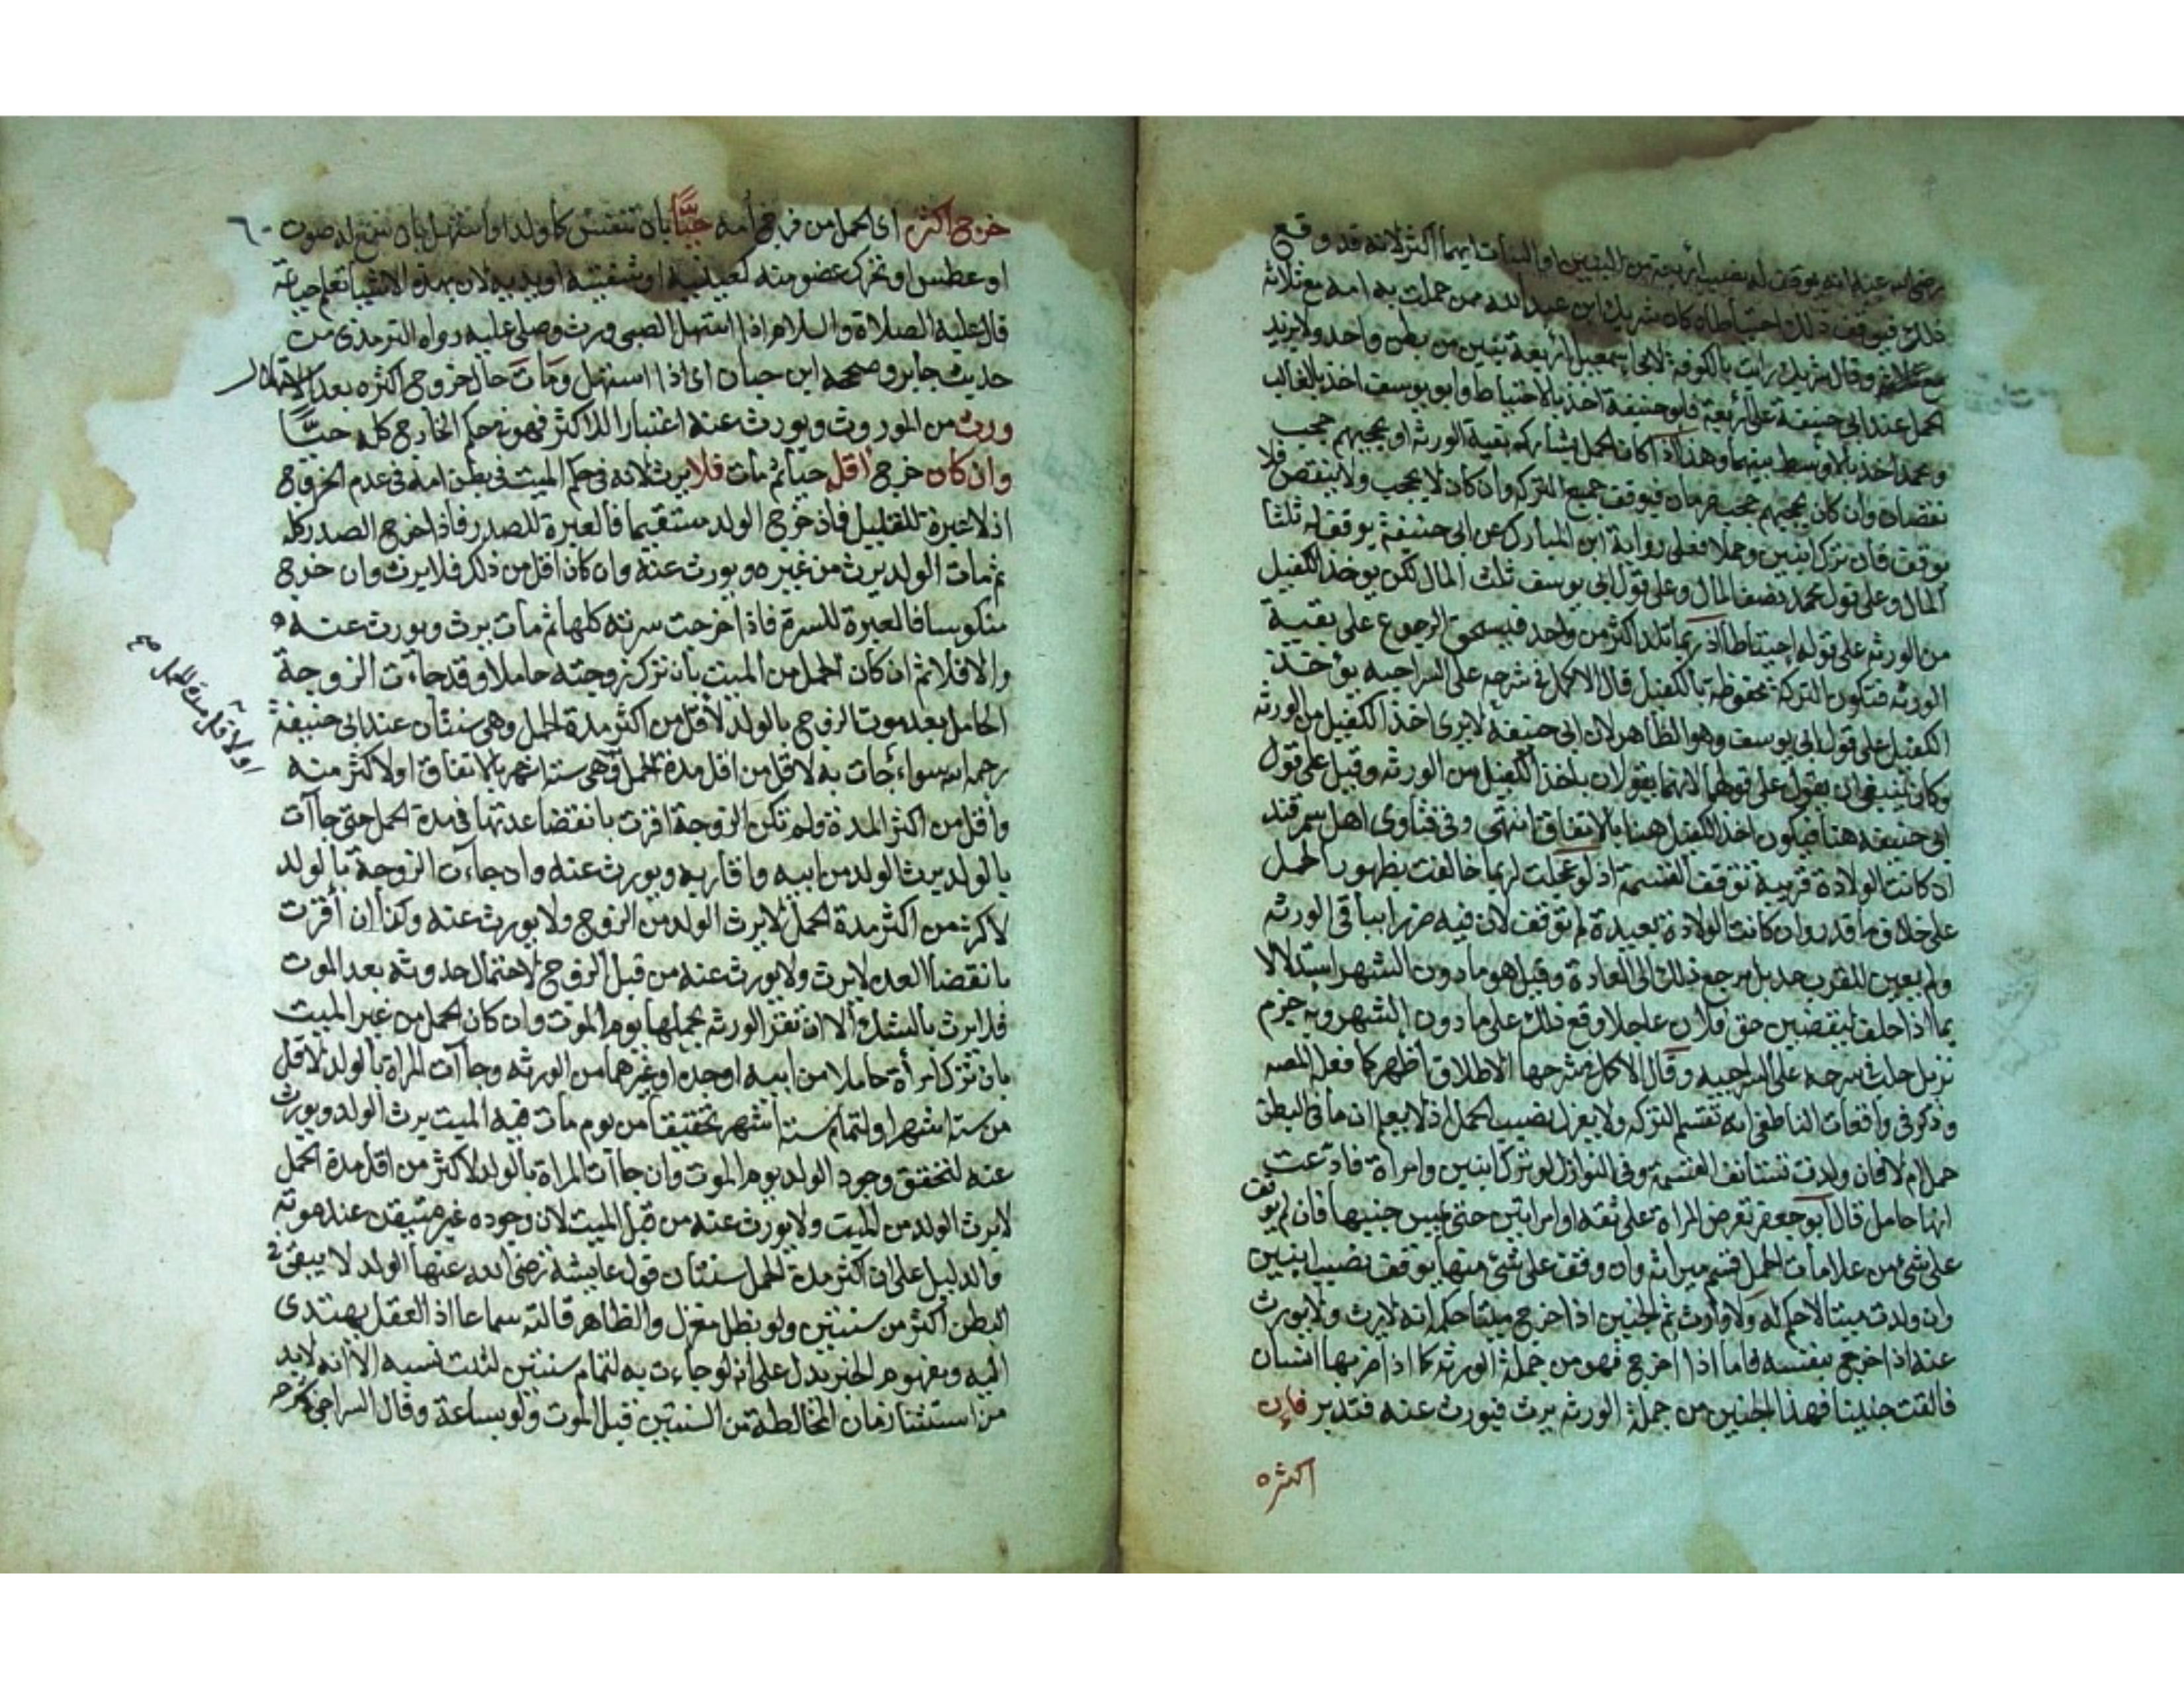 رضي الله عنه انه يوقف له نصيب اربعة من البنين او البنات ايهما اكثر لانه قد وقع
ذلك فيوقف ذلك احتياطا كان شريك ابن عبد الله ممن حملت به امه مع ثلاثة
وقال شريك رايت بالكوفة لابي اسمعيل اربعة بنين من بطن واحد ولا يزيد
الحمل عند ابي حنيفة على اربعة فابو حنيفة اخذ بالاحتياط وابو يوسف اخذ بالغالب
ومحمد اخذ بالاوسط بينهما وهذا اذا كان الحمل يشارك بقية الورثه او يحجبهم حجب
نقصان وان كان يحجبهم حجب حرمان فيوقف جميع التركه وان كان لا يحجب ولا ينقص فلا
يوقف فان ترك ابنين وحملا فعلى رواية ابن المبارك عن ابي حنيفة يوقف له ثلثا
المال وعلى قول محمد نصف المال وعلى قول ابي يوسف ثلث المال لكن يوخذ الكفيل
من الورثه على قوله احتياطا اذ ربما تلد اكثر من واحد فيستحق الرجوع على بقية
الورثه فتكون التركة محفوظة بالكفيل قال الاكمل في شرحه على السراجيه يوخذ
الكفيل على قول ابي يوسف وهو الظاهر لان ابي حنيفة لا يرى اخذ الكفيل من الورثه
وكان ينبغي ان يقول على قولهما لانهما يقولان باخذ الكفيل من الورثه وقيل على قول
ابي حنيفه هنا فيكون اخذ الكفيل هنا بالاتفاق انتهى وفي فتاوى اهل سمرقند
ان كانت الولادة قريبة توقف القسمة اذ لو عجلت لربما خالفت بظهور الحمل
على خلاف ما قدر وان كانت الولادة بعيدة لم توقف لان فيه ضررا بباقي الورثه
ولم يعين للقرب حد بل يرجع ذلك الى العادة وقيل هو ما دون الشهر استدلالا
بما اذا حلف ليقضين حق فلان عاجلا وقع ذلك على ما دون الشهر وبه جزم
نزيل حلب شرحه على السراجيه وقال الاكمل في شرحها الاطلاق اظهر كما فعل المص
وذكر في واقعات الناطفي انه تقسم التركه ولا يعزل نصيب الحمل اذ لا يعلم ان ما في البطن
حمل ام لا فان ولدت تستانف القسمة وفي النوازل لو ترك ابنين وامراة فادعت
انها حامل قال ابو جعفر تعرض المراة على ثقه او امراتين حتى يمس جنبيها فان لم توقف
على شئ من علامات الحمل قسم ميراثه وان وقف على شئ منها يوقف نصيب ابنين
وان ولدت ميتا لاحكم له ولا وارث ثم الجنين اذا خرج ميتا حكمه انه لا يرث ولا يورث
عنه اذا خرج بنفسه فاما اذا اخرج فهو من جملة الورثه كما اذا ضربها انسان
فالقت جنينا فهذا الجنين من جملة الورثه يرث فيورث عنه فتدبر فان
اكثره
خرج اكثر اى الحمل من فرج امه حيًّا بان تنفس كما ولد او استهل بان سمع له صوت
او عطس او تحرك عضو منه كعينيه او شفتيه او يديه لان بهذه الاشيا تعلم حياته
قال عليه الصلاة والسلام اذا استهل الصبي ورث وصلى عليه رواه الترمذى من
حديث جابر وصححه ابن حبان اى اذا استهل ومات حال خروج اكثره بعد الاستهلال
ورث من الموروث ويورث عنه اعتبارا للاكثر فهو في حكم الخارج كله حيًّا
وان كان خرج اقله حيا ثم مات فلا يرث لانه في حكم الميت في بطن امه في عدم الخروج
اذ لا عبرة للقليل فان خرج الولد مستقيما فالعبرة للصدر فاذا خرج الصدر كله
ثم مات الولد يرث من غيره ويورث عنه وان كان اقل من ذلك فلا يرث وان خرج
منكوسا فالعبرة للسرة فاذا خرجت سرته كلها ثم مات يرث ويورث عنه
والا فلا ثم ان كان الحمل من الميت بان ترك زوجته حاملا وقد جاءت الزوجة
الحامل بعد موت الزوج بالولد لاقل من اكثر مدة الحمل وهي سنتان عند ابي حنيفة
رحمه الله سواء جات به لاقل من اقل مدة الحمل وهى ستة اشهر بالاتفاق او لاكثر منه
او لاقل مدة الحمل صح
واقل من اكثر المدة ولم تكن الزوجة اقرت بانقضا عدتها في مدة الحمل حتى جاآت
بالولد يرث الولد من ابيه واقاربه ويورث عنه وان جاءت الزوجة بالولد
لاكثر من اكثر مدة الحمل لا يرث الولد من الزوج ولا يورث عنه وكذا ان أقرت
بانقضا العده لا يرث ولا يورث عنه من قبل الزوج لاحتمال حدوثه بعد الموت
فلا يرث بالشك الا ان تقر الورثه بحملها يوم الموت وان كان الحمل من غير الميت
بان ترك امرأة حاملا من ابيه او جده او غيرهما من الورثه وجاآت المراة بالولد لاقل
من ستة اشهر او لتمام ستة اشهر تحقيقا من يوم مات فيه الميت يرث الولد ويورث
عنه لتحقق وجود الولد يوم الموت وان جاات المراة بالولد لاكثر من اقل مدة الحمل
لا يرث الولد من الميت ولا يورث عنه من قبل الميت لان وجوده غير متيقن عند موته
والدليل على ان اكثر مدة الحمل سنتان قول عايشة رضى الله عنها الولد لا يبقى في
البطن اكثر من سنتين ولو بظل مغزل والظاهر قالته سماعا اذ العقل يهتدى
اليه ومفهوم الخبر يدل على انه لو جاءت به لتمام سنتين لثبت نسبه الا انه لابد
من استثنا زمان المخالطة من السنتين قبل الموت ولو بساعة وقال السراجي